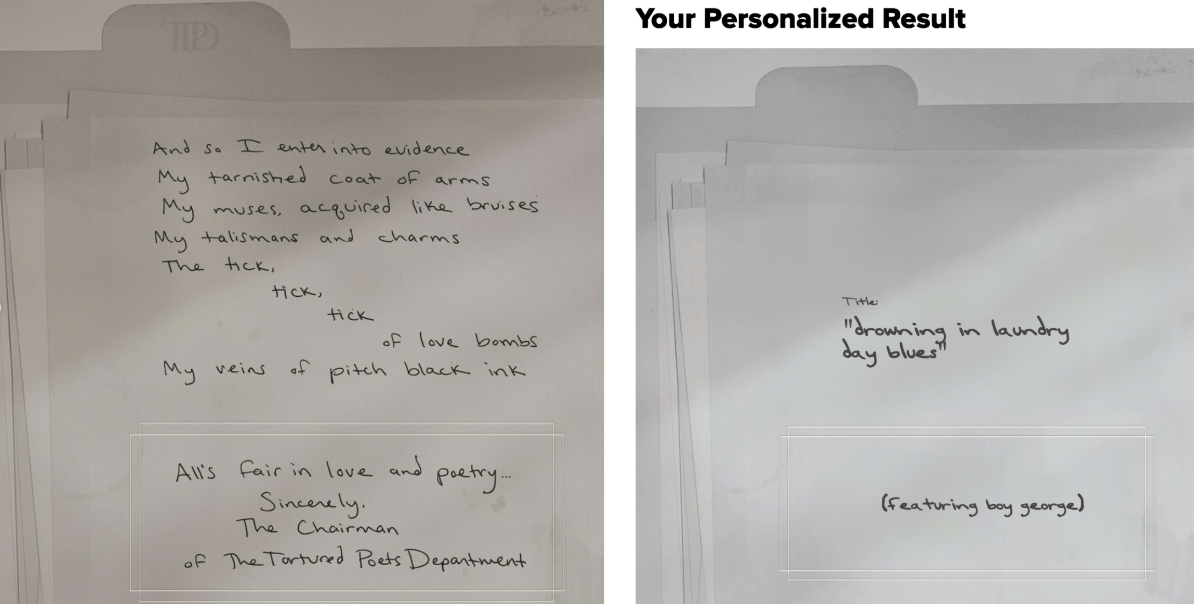 TTPD
And so I enter into evidence
My tarnished coat of arms
My muses, acquired like bruises
My talismans and charms
The tick,
tick,
tick
of love bombs
My veins of pitch black ink
All's fair in love and poetry...
Sincerely,
The Chairman
of The Tortured Poets Department
Your Personalized Result
Title:
"drowning in laundry
day blues"
(featuring boy george)